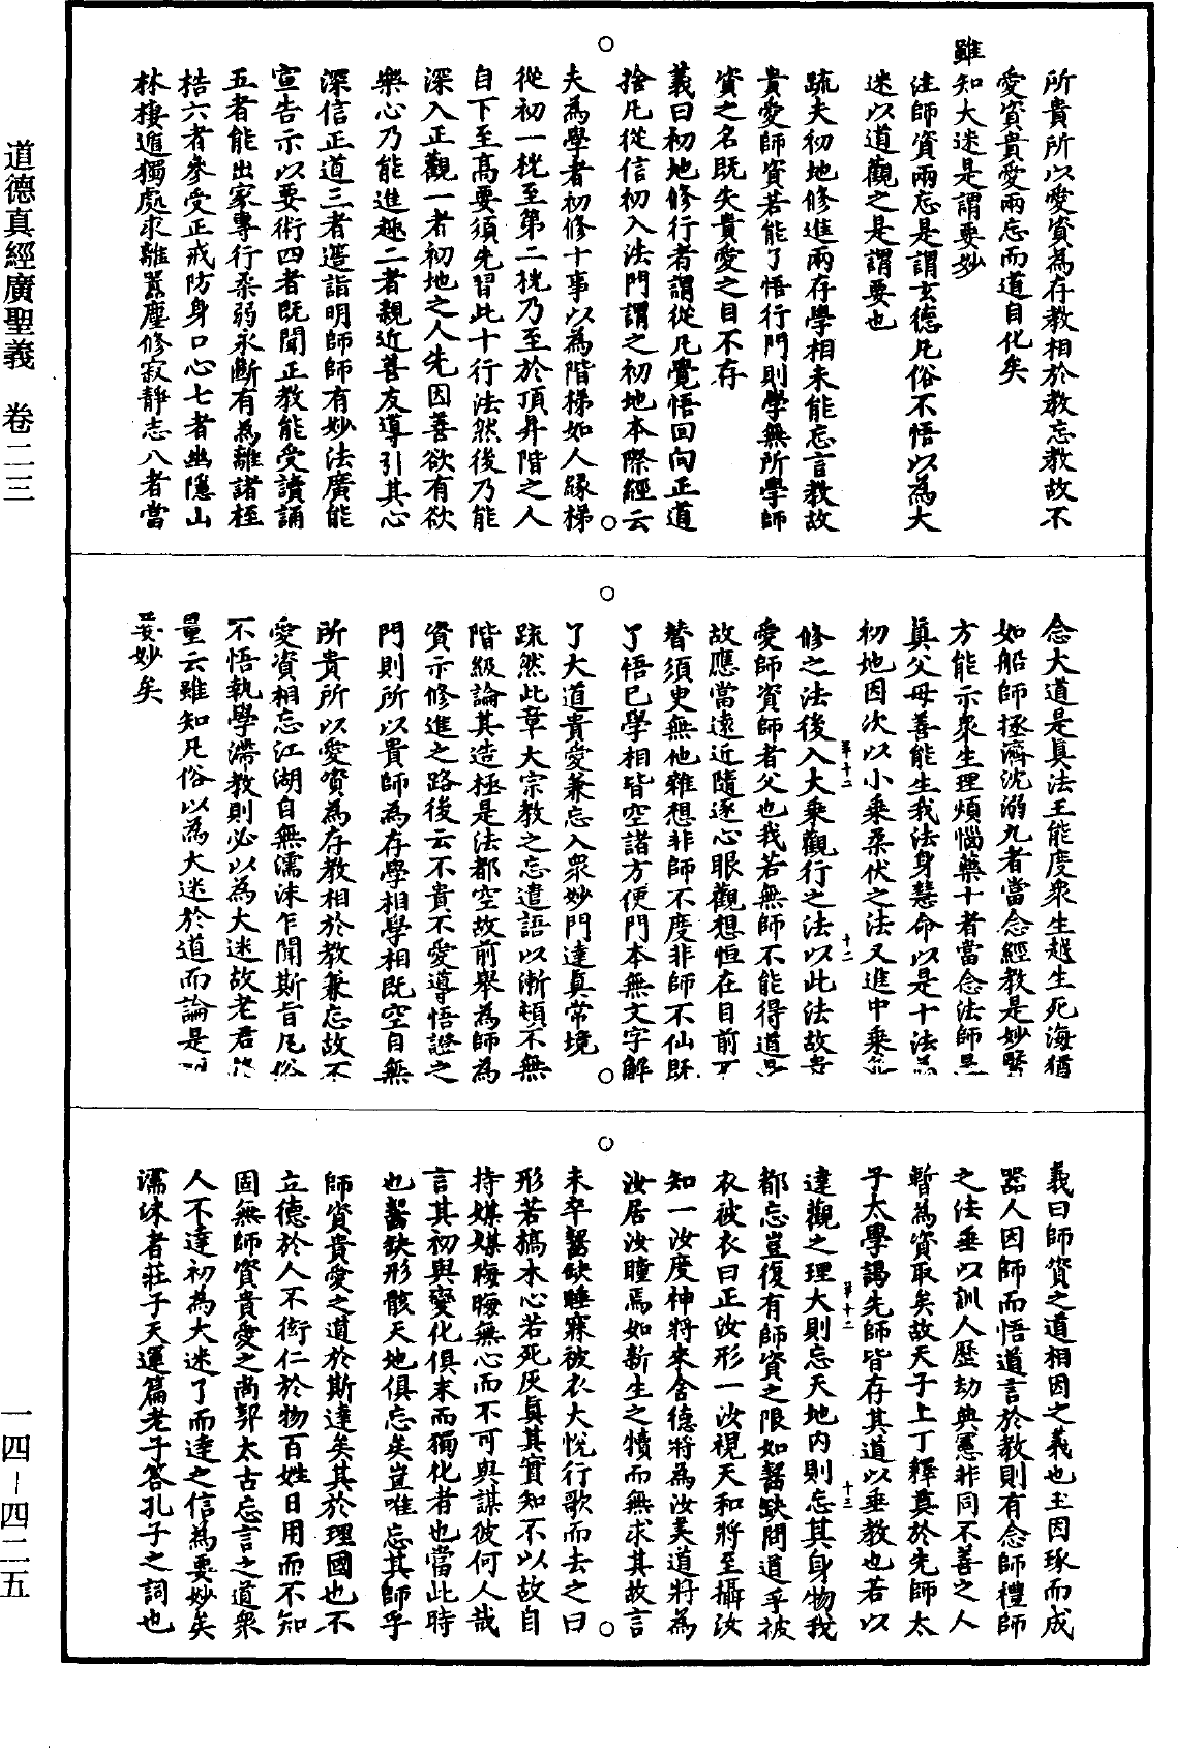 所貴所以愛資為存教相於教忘教故不
愛資貴愛兩忘而道自化矣
雖知大迷是謂要妙
注師資兩忘是謂玄德凡俗不悟以為大
迷以道觀之是謂要也
疏夫初地修進兩存學相未能忘言教故
貴愛師資若能了悟行門則學無所學師
資之名既失貴愛之目不存
義曰初地修行者謂從凡覺悟回向正道
捨凡從信初入法門謂之初地本際經云
夫為學者初修十事以為階梯如人緣梯
從初一桄至第二桄乃至於頂昇階之人
自下至高要須先習此十行法然後乃能
深入正觀一者初地之人先因善欲有欲
樂心乃能進趣二者親近善友導引其心
深信正道三者遲詣明師師有妙法廣能
宣告示以要術四者既聞正教能受讀誦
五者能出家專行柔弱永斷有為離諸桎
梏六者參受正戒防身口心七者幽隱山
林棲遁獨處求離囂塵修寂靜志八者當
念大道是真法王能度衆生越生死海猶
如船師拯濟沈溺九者當念經教是妙醫
方能示衆生理煩惱藥十者當念法師是
真父母善能生我法身慧命以是十法為
初地因次以小乘柔伏之法又進中乘
修之法後入大乘觀行之法以此法故貴
愛師資師者父也我若無師不能得道是
故應當遠近隨逐心眼觀想恒在目前不
替須臾無他雜想非師不度非師不仙既
了悟已學相皆空諸方便門本無文字解
了大道貴愛兼忘入衆妙門達真常境
疏然此章大宗教之忘遣語以漸頓不無
階級論其造極是法都空故前舉為師為
資示修進之路後云不貴不愛導悟證之
門則所以貴師為存學相學相既空自無
所貴所以愛資為存教相於教兼忘故不
愛資相忘江湖自無濡沫乍聞斯旨凡俗
不悟執學滯教則必以為大迷故老君
量云雖知凡俗以為大迷於道而論是
要妙矣
義曰師資之道相因之義也玉因琢而成
器人因師而悟道言於教則有念師禮師
之法垂以訓人歷劫典憲非同不善之人
暫為資取矣故天子上丁釋奠於先師太
子太學謁先師皆存其道以垂教也若以
達觀之理大則忘天地內則忘其身物我
都忘豈復有師資之限如齧缺問道乎被
衣被衣曰正汝形一汝視天和將至攝汝
知一汝度神將來舍德將為汝美道將為
汝居汝瞳焉如新生之犢而無求其故言
未卒齧缺睡寐被衣大悅行歌而去之曰
形若槁木心若死灰真其實知不以故自
持媒媒晦晦無心而不可與謀彼何人哉
言其初與變化俱末而獨化者也當此時
也齧缺形骸天地俱忘矣豈唯忘其師乎
師資貴愛之道於斯達矣其於理國也不
立德於人不衒仁於物百姓日用而不知
固無師資貴愛之尚郭太古忘言之道衆
人不達初為大迷了而達之信為要妙矣
濡沫者莊子天運篇老子答孔子之詞也
道德真經廣聖義 卷二三
一四-四二五